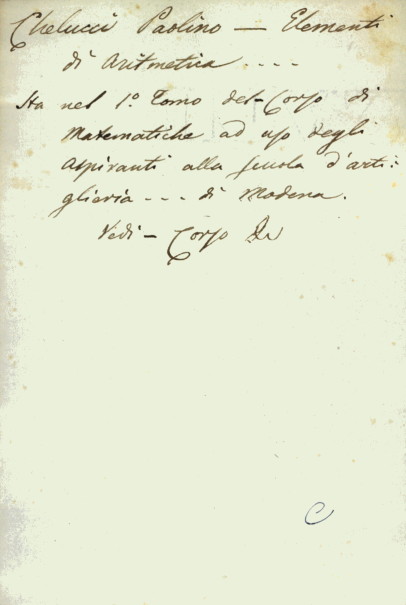 Chelucci Paolino — Elementi
di Aritmetica . . . .
Sta nel 1º Tomo del Corso di
Matematiche ad uso degli
aspiranti alla scuola d'arti-
glieria - - - di Modena.
Vedi — Corso
C